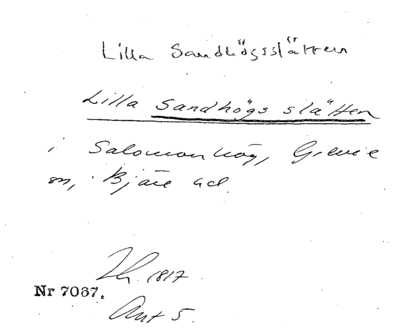 Lilla Sandhögsslätten
Lilla Sandhögs slätten
i Salomonhög, Grevie
sn, Bjäre hd.
Th. 1817
Nr 7067.
Ant 5.